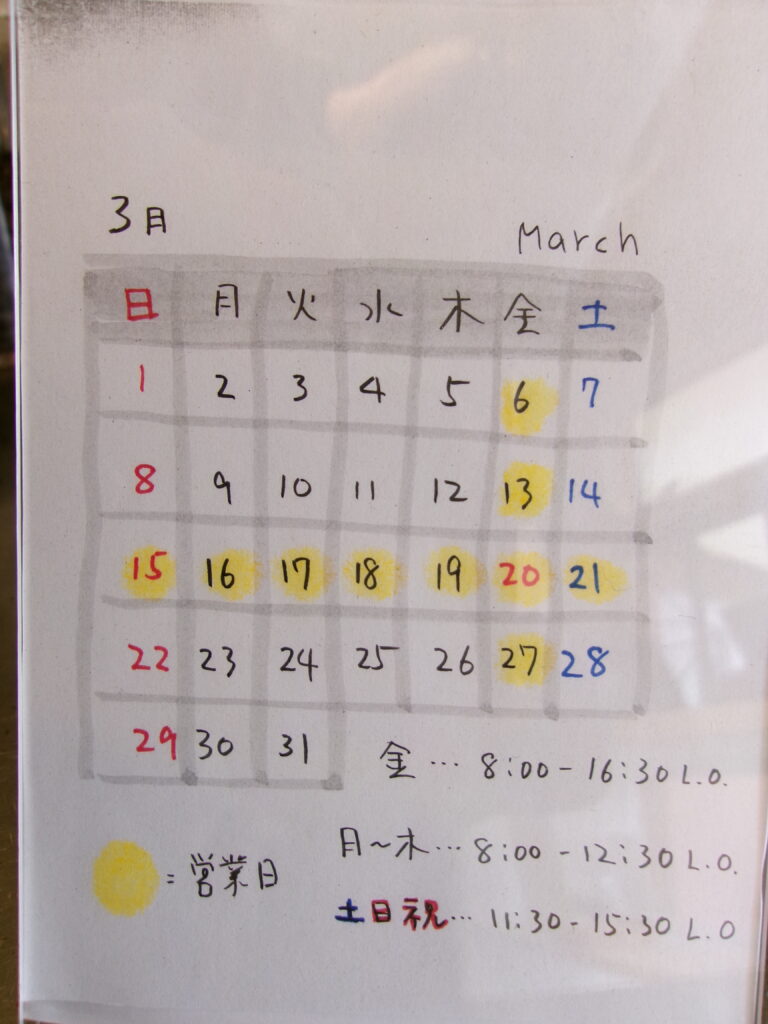 3月 March
日 月 火 水 木 金 土
1 2 3 4 5 6 7
8 9 10 11 12 13 14
15 16 17 18 19 20 21
22 23 24 25 26 27 28
29 30 31
金… 8:00-16:30 L.O.
月~木… 8:00-12:30 L.O.
= 営業日
土日祝… 11:30-15:30 L.O